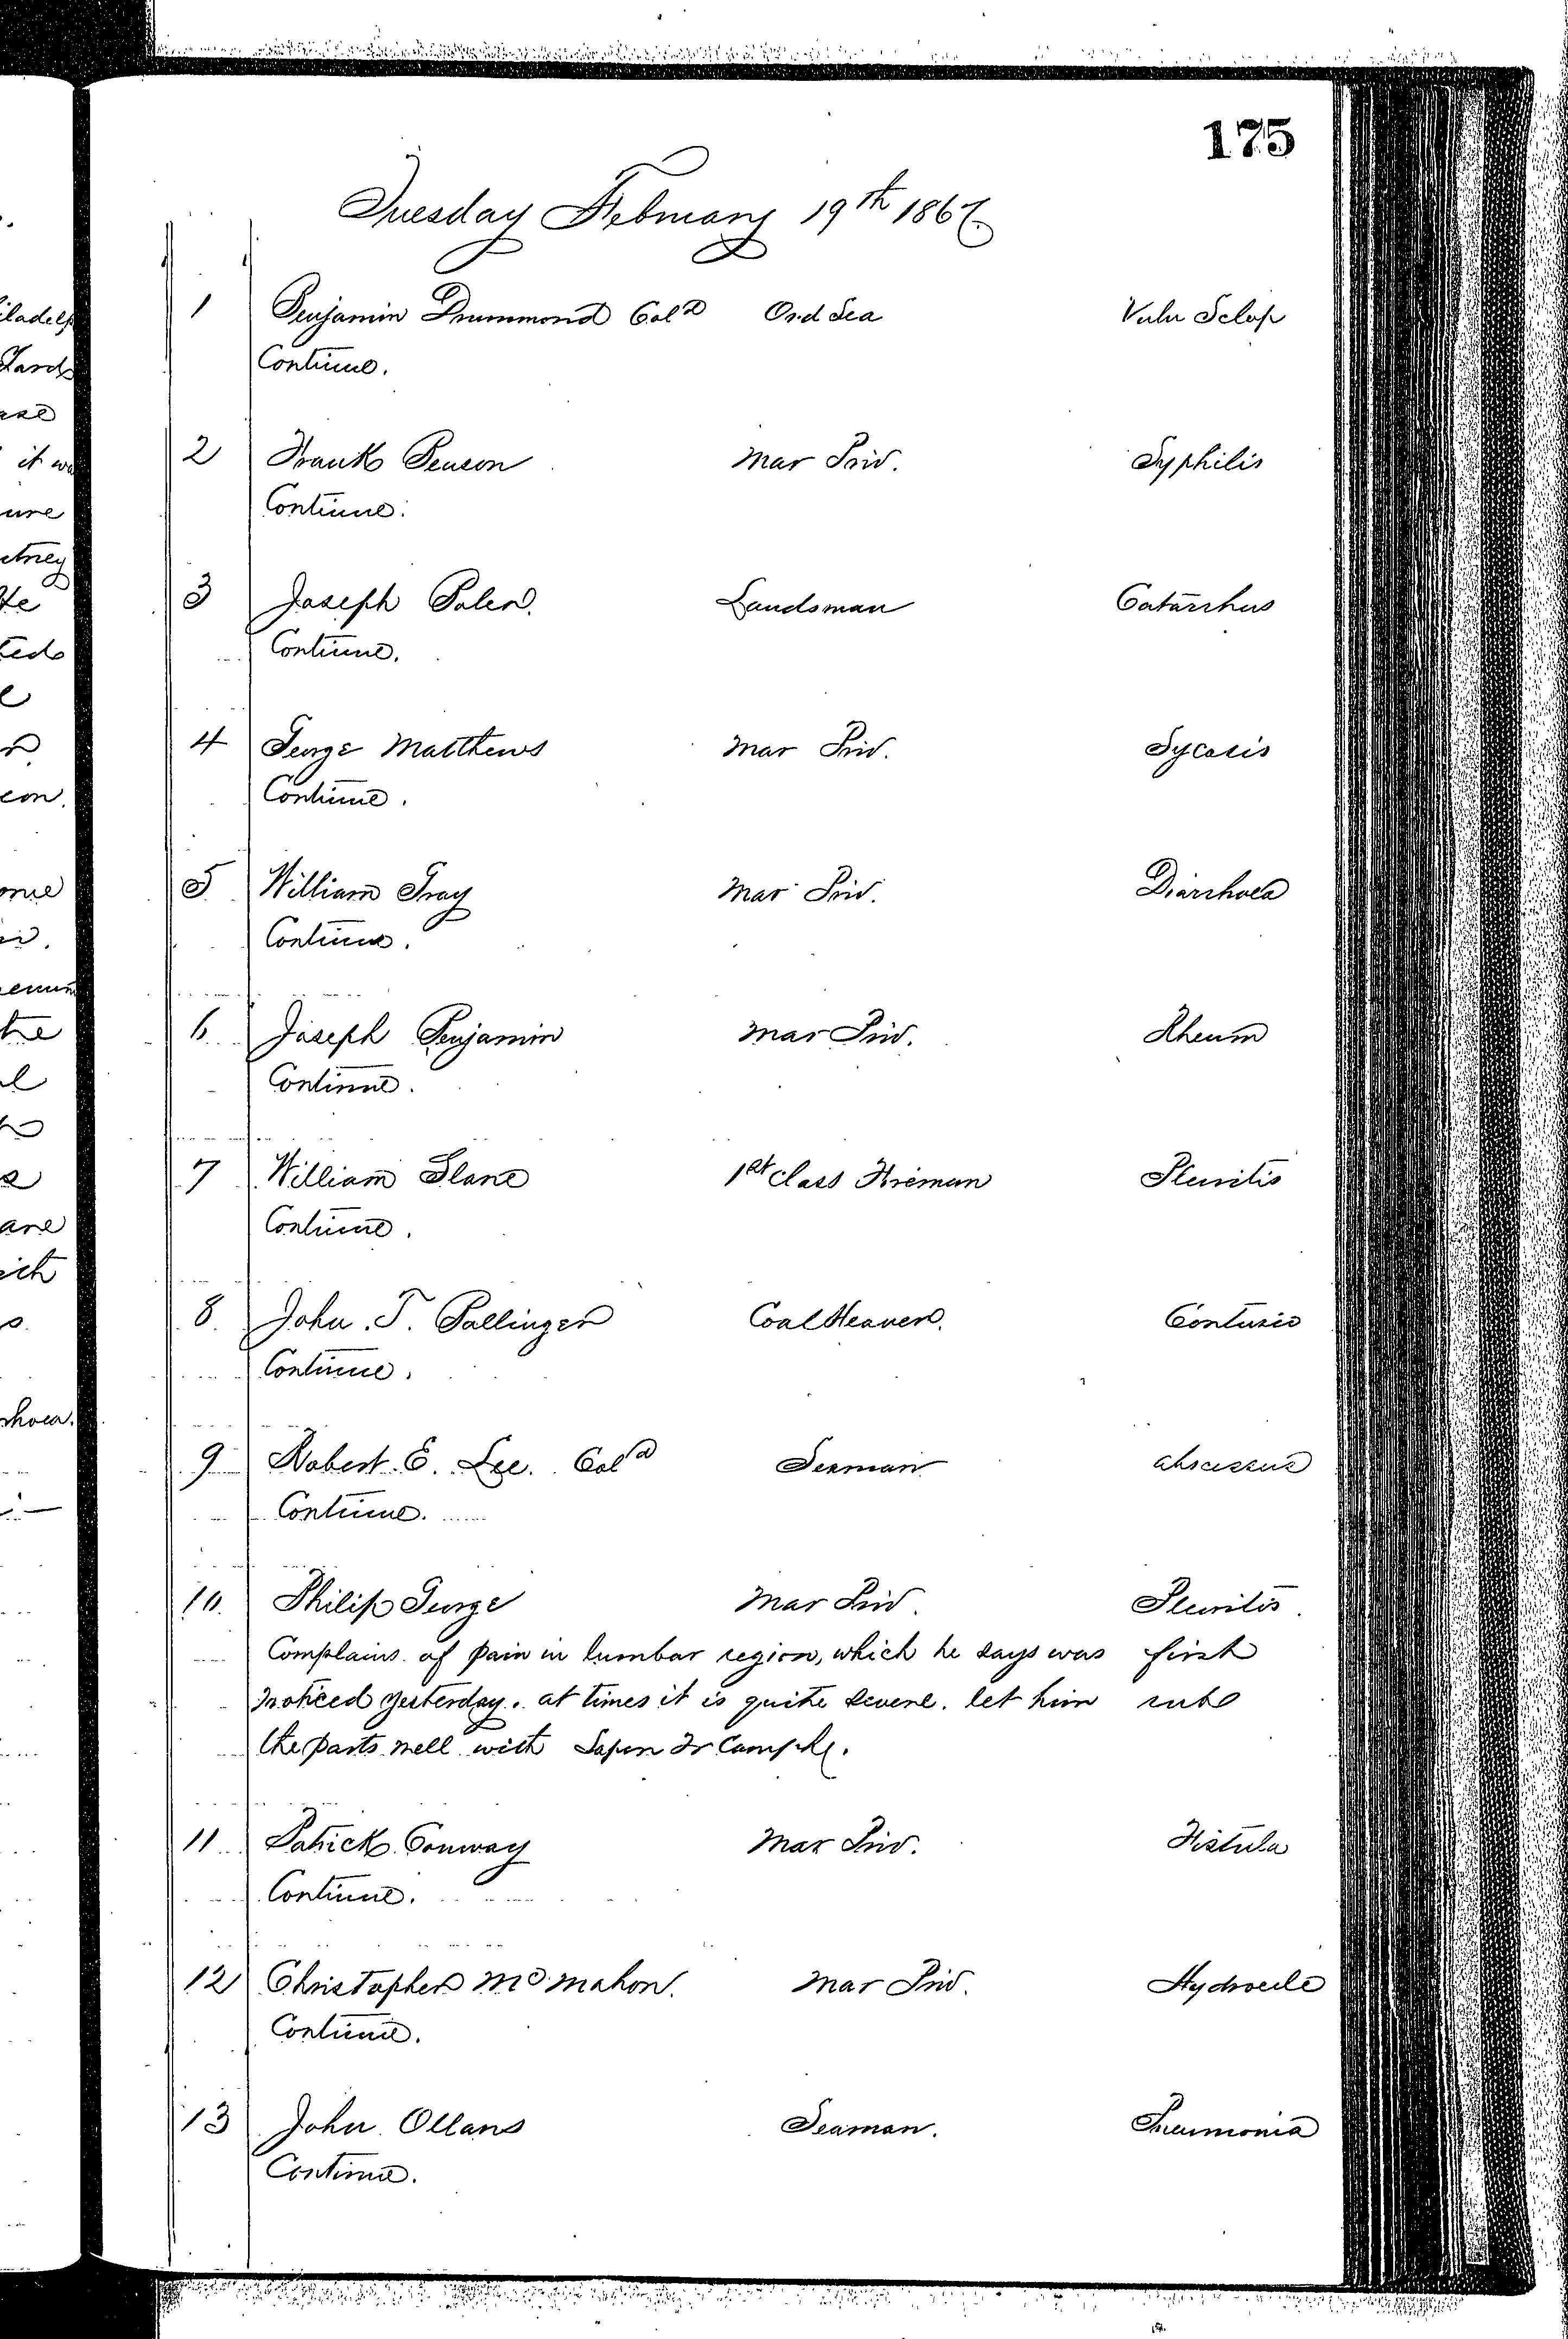 175
Tuesday February 19th 1867.
1 Benjamin Drummond Cold Ord Sea Vuln Sclop
Continue.
2 Frank Benson Mar Priv. Syphilis
Continue.
3 Joseph Landsman Catarrhus
Continue.
4 George Matthews Mar Priv. Sycosis
Continue.
5 William Gray Mar Priv. Diarrhoea
Continue.
6 Joseph Benjamin Mar Priv. Rheum
Continue.
7 William Slane 1st Class Fireman Pleuritis
Continue.
8 John T. Bollinger Coal Heaver. Contusio
Continue.
9 Robert E. Lee. Cold Seaman abscessus
Continue.
10. Philip George Mar Priv. Pleuritis.
Complains of pain in lumbar region, which he says was first
noticed yesterday. at times it is quite severe. let him rub
the parts well with Sapon Tr Camph.
11 Patrick Conway Mar Priv. Fistula
Continue.
12 Christopher McMahon. Mar Priv. Hydrocele
Continue.
13 John Ollans Seaman. Pneumonia
Continue.